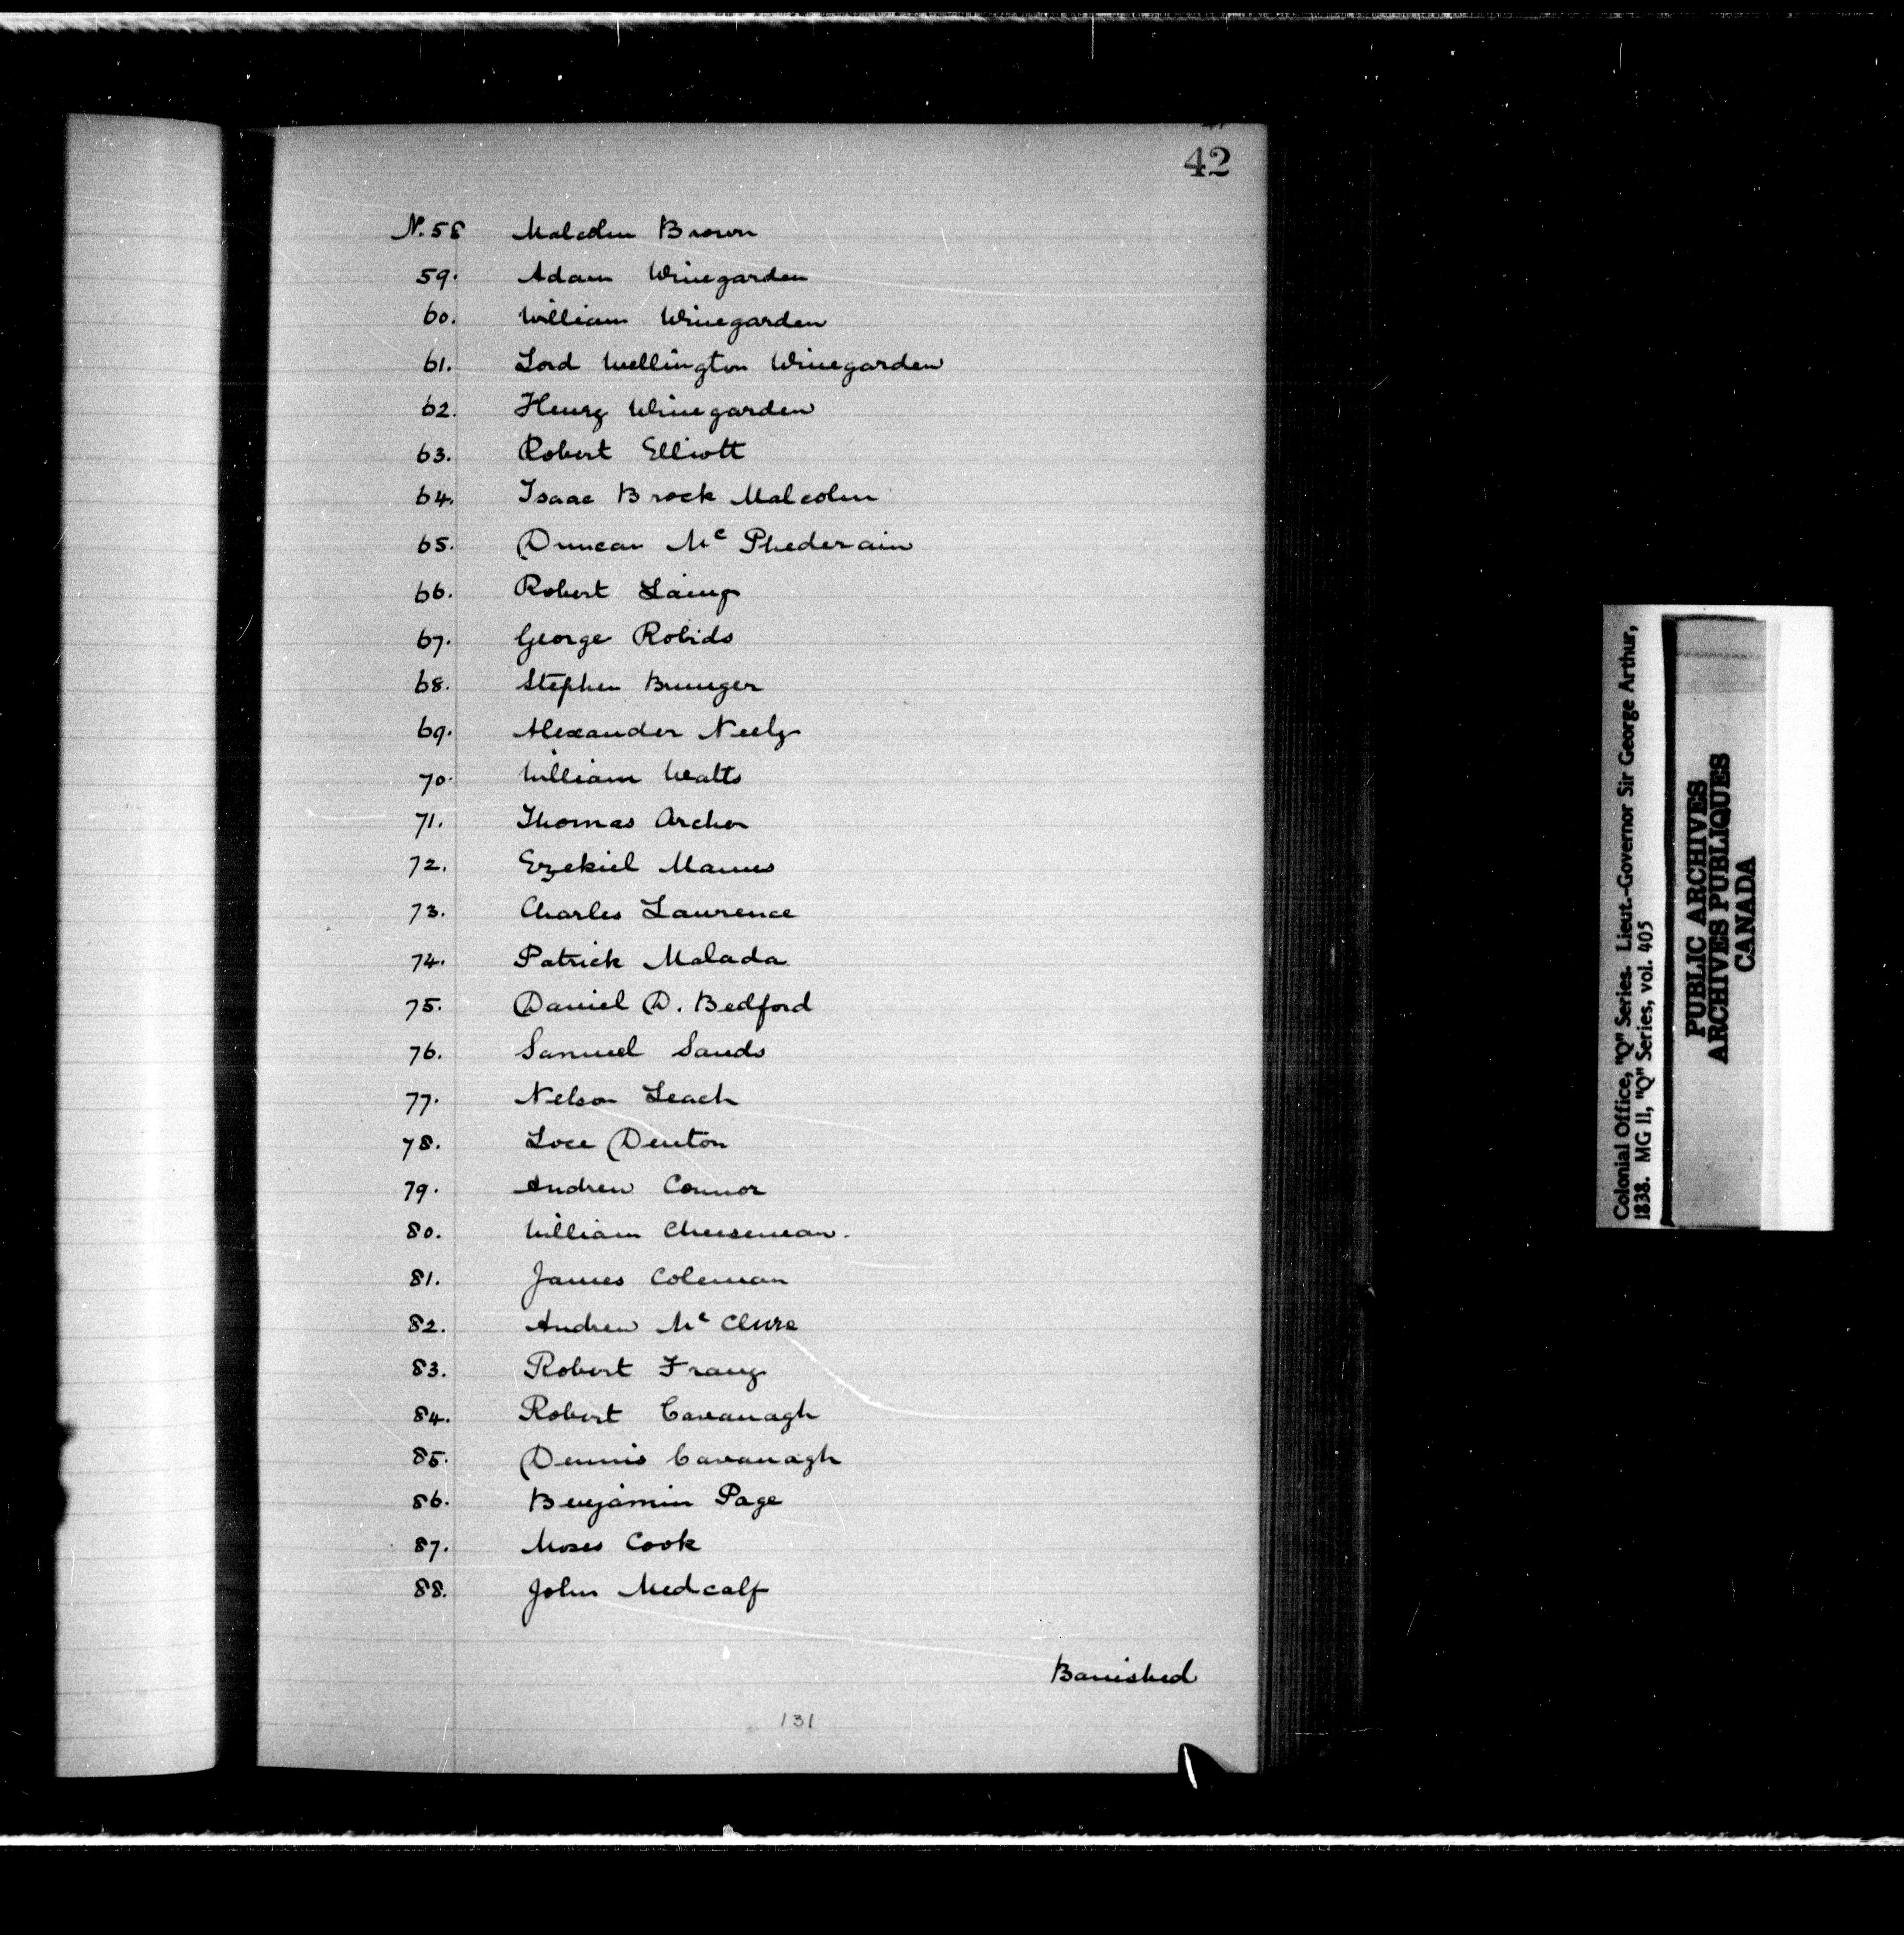 42
N. 58 Malcolm Brown
59. Adam Winegarden
60. William Winegarden
61. Lord Wellington Winegarden
62. Henry Winegarden
63. Robert Elliott
64. Isaac Brock Malcolm
65. Duncan Mc Phederain
66. Robert Laing
67. George Robids
68. Stephen Brunger
69. Alexander Neely
70. William Watts
71. Thomas Archer
72. Ezekiel Manns
73. Charles Laurence
74. Patrick Malada
75. Daniel D. Bedford
76. Samuel Sands
77. Nelson Leach
78. Loce Denton
79. Andrew Connor
80. William Cheeseman.
81. James Coleman
82. Andrew Mc Clure
83. Robert
84. Robert Cavanagh
85. Dennis Cavanagh
86. Benjamin Page
87. Moses Cook
88. John Medcalf
Banished
131
Colonial Office, "Q" Series. Lieut.-Governor Sir George Arthur,
1838. MG 11, "Q" Series, vol. 405
PUBLIC ARCHIVES
ARCHIVES PUBLIQUES
CANADA